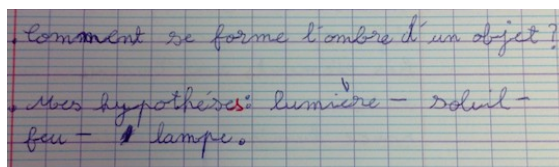 . Comment se forme l'ombre d'un objet ?
. Mes hypothéses : lumière - soleil -
feu - lampe.